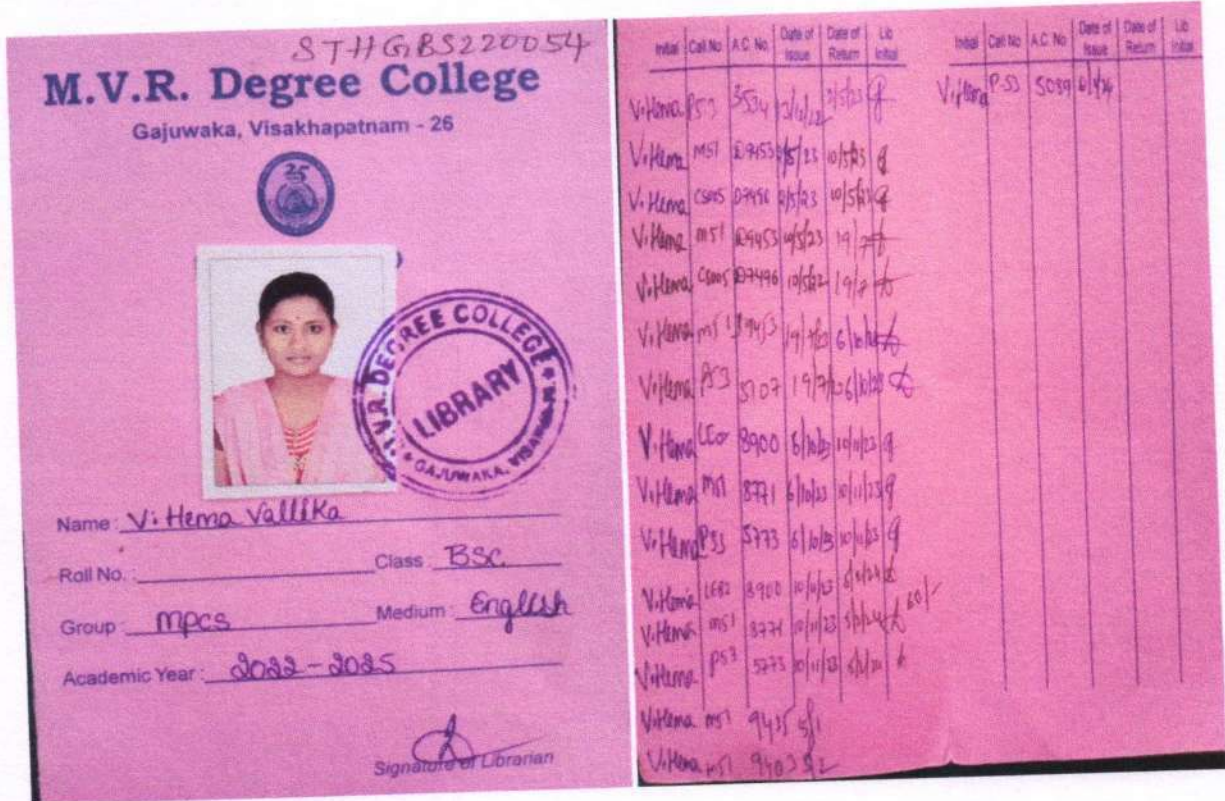 STHGBS220054
M.V.R. Degree College
Gajuwaka, Visakhapatnam - 26
25
M.V.R. DEGREE COLLEGE
LIBRARY
GAJUWAKA,
Name : V. Hema Vallika
Roll No. : Class : BSC
Group : MPCS Medium : English
Academic Year : 2022 - 2025
Signature of Librarian
Initial Call No A.C. No. Date of Issue Date of Return Lib Initial
V. Hema P53 3534 2/5/23
V. Hema M51 D9453 2/5/23 10/5/23
V. Hema CS005 D7496 2/5/23 10/5/23
V. Hema M51 D9453 10/5/23 19/7
V. Hema CS005 D7496 19/7
V. Hema M51 19/7/23
V. Hema P53 5107 19/7/23 6/10/23
V. Hema 8900 6/10/23 10/11/23
V. Hema M51 8771 6/10/23 10/11/23
V. Hema P53 5773 6/10/23 10/11/23
V. Hema 8900 10/11/23
V. Hema M51 8771 10/11/23 60/-
V. Hema P53 5773 10/11/23
V. Hema M51 9435 5/1
V. Hema M51 9403
Initial Call No A.C. No. Date of Issue Date of Return Lib Initial
V. Hema P-53 5089